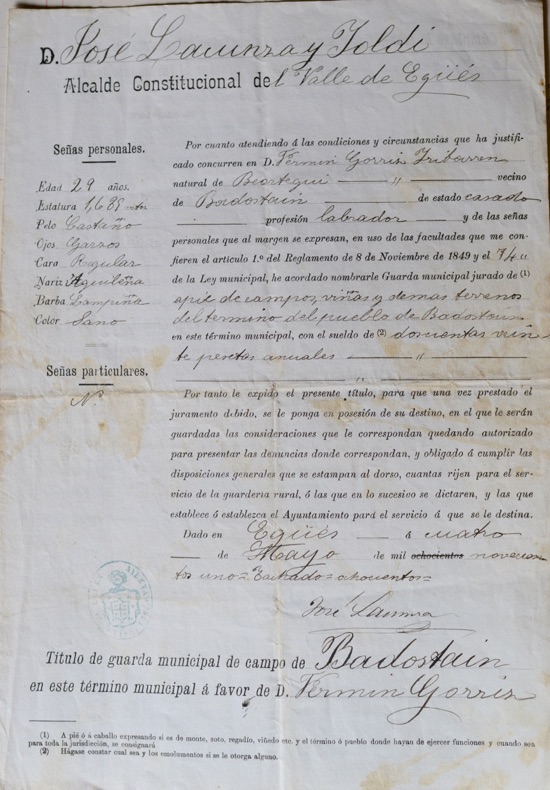 D. José Lacunza y Toldi
Alcalde Constitucional del Valle de Egüés
Señas personales.
Edad 29 años.
Estatura 1,685
Pelo Castaño
Ojos Garzos
Cara Regular
Nariz Aguileña
Barba Lampiña
Color Sano
Señas particulares.
N.
Por cuanto atendiendo á las condiciones y circunstancias que ha justifi-
cado concurren en D. Fermin Gorriz Iribarren
natural de vecino
de Badostain de estado casado
profesión labrador y de las señas
personales que al margen se expresan, en uso de las facultades que me con-
fieren el artículo 1.º del Reglamento de 8 de Noviembre de 1849 y el 74
de la Ley municipal, he acordado nombrarle Guarda municipal jurado de (1)
apié de campos, viñas y demas terrenos
del termino del pueblo de Badostain
en este término municipal, con el sueldo de (2) doscientas vein-
te pesetas anuales
Por tanto le expido el presente título, para que una vez prestado el
juramento debido, se le ponga en posesión de su destino, en el que le serán
guardadas las consideraciones que le correspondan quedando autorizado
para presentar las denuncias donde correspondan, y obligado á cumplir las
disposiciones generales que se estampan al dorso, cuantas rijen para el ser-
vicio de la guardería rural, ó las que en lo sucesivo se dictaren, y las que
establece ó establezca el Ayuntamiento para el servicio á que se le destina.
Dado en Egüés á cuatro
de Mayo de mil ochocientos novecien
tos uno = Tachado = ochocientos =
José Lacunza
Título de guarda municipal de campo de Badostain
en este término municipal á favor de D. Fermin Gorriz
(1) A pié ó á caballo expresando si es de monte, soto, regadío, viñedo etc. y el término ó pueblo donde hayan de ejercer funciones y cuando sea
para toda la jurisdicción, se consignará
(2) Hágase constar cual sea y los emolumentos si se le otorga alguno.